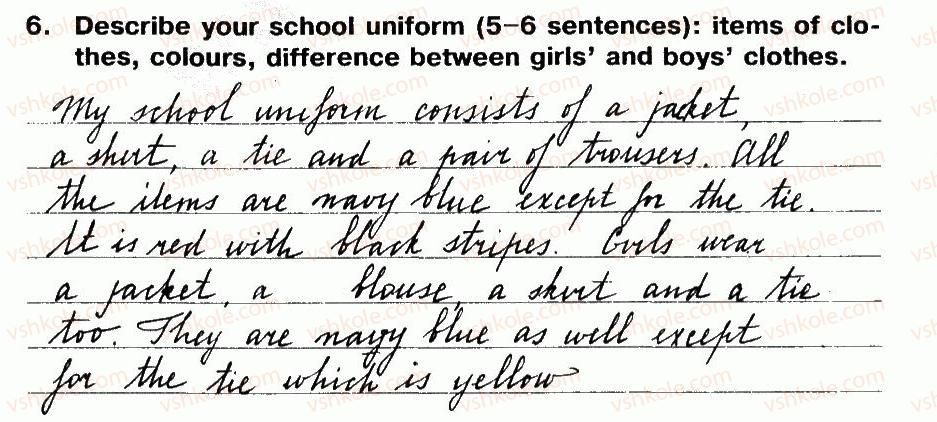 6. Describe your school uniform (5–6 sentences): items of clo-
thes, colours, difference between girls' and boys' clothes.
My school uniform consists of a jacket,
a shirt, a tie and a pair of trousers. All
the items are navy blue except for the tie.
It is red with black stripes. Girls wear
a jacket, a blouse, a skirt and a tie
too. They are navy blue as well except
for the tie which is yellow